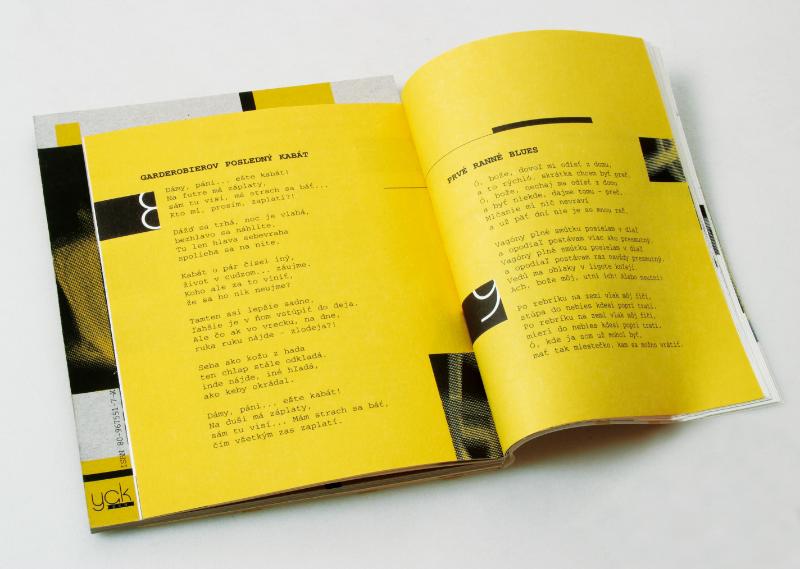 GARDEROBIEROV POSLEDNÝ KABÁT
8
Dámy, páni... ešte kabát!
Na futre má záplaty,
sám tu visí, má strach sa báť...
Kto mi, prosím, zaplatí?!
Dážď sa trhá, noc je vlahá,
bezhlavo sa náhlite.
Tu len hlava sebevraha
spolieha sa na nite.
Kabát o pár čísel iný,
život v cudzom... záujme.
Koho ale za to viniť,
že sa ho nik neujme?
Tamten asi lepšie sadne,
ľahšie je v ňom vstúpiť do deja.
Ale čo ak vo vrecku, na dne,
ruka ruku nájde - zlodeja?!
Seba ako kožu z hada
ten chlap stále odkladá.
inde nájde, iné hľadá,
ako keby okrádal.
Dámy, páni... ešte kabát!
Na duši má záplaty,
sám tu visí... Mám strach sa báť,
čím všetkým zas zaplatí.
ISBN 80-967551-7-X
yak
PRVÉ RANNÉ BLUES
9
Ó, bože, dovoľ mi odísť z domu,
a to rýchlo, skrátka chcem byť preč.
Ó, bože, nechaj ma odísť z domu
a byť niekde, dajme tomu - preč.
Mlčanie mi nič nevraví
a už päť dní nie je so mnou reč.
Vagóny plné smútku posielam v diaľ
a opodiaľ postávam viac ako presmutný.
Vagóny plné smútku posielam v diaľ
a opodiaľ postávam raz navždy presmutný.
Vedú ma oblaky v ligote koľají.
Ach, bože môj, utni ich! Alebo neutni!
Po rebríku na zemi vlak môj fičí,
stúpa do nebies kdesi popri trati.
Po rebríku na zemi vlak môj fičí,
mieri do nebies kdesi popri trati.
Ó, kde ja som už mohol byť,
mať tak miestečko, kam sa možno vrátiť.